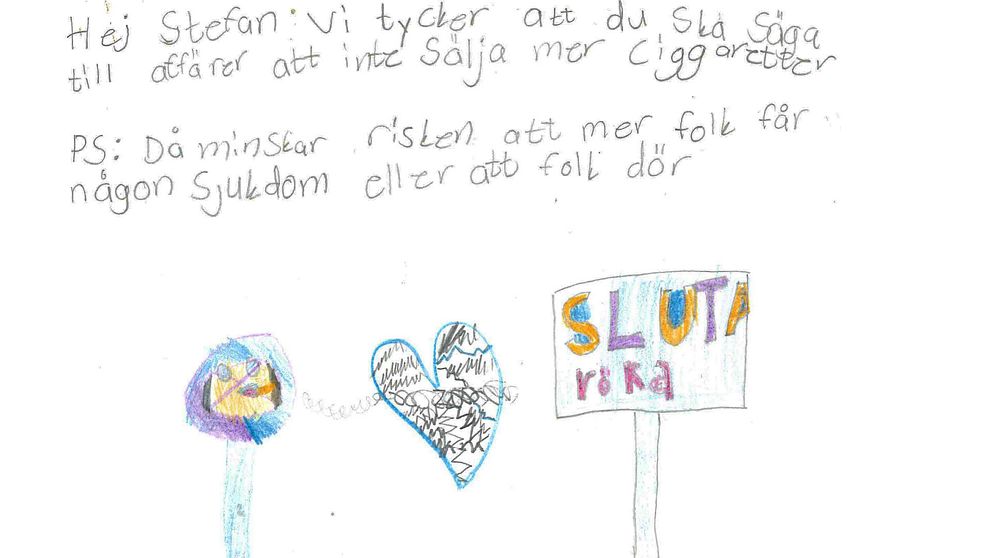 Hej Stefan: Vi tycker att du ska säga
till affärer att inte Sälja mer Ciggaretter
PS: Då minskar risken att mer folk får
någon Sjukdom eller att folk dör
SLUTA
röka